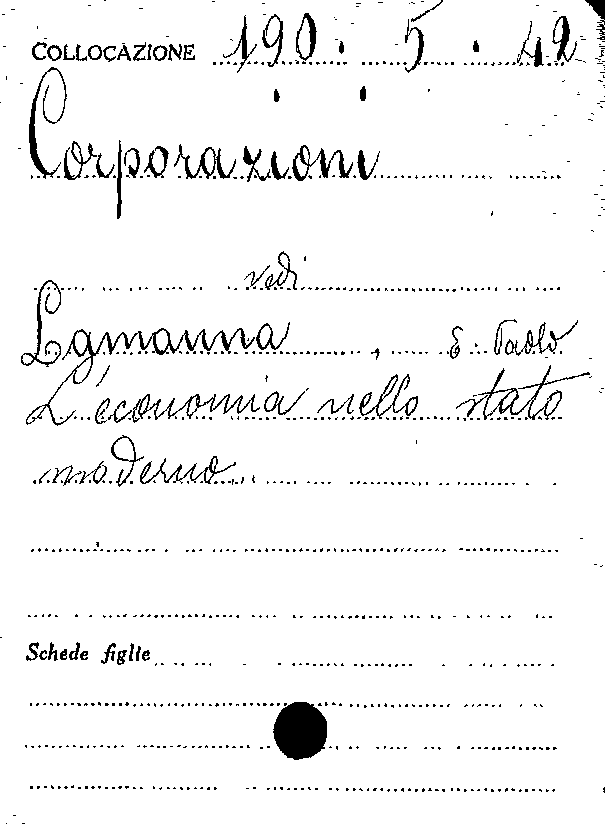 COLLOCAZIONE 190. 5. 42
Corporazioni
vedi
Lamanna, E. Paolo
L'economia nello stato
moderno.
Schede figlie